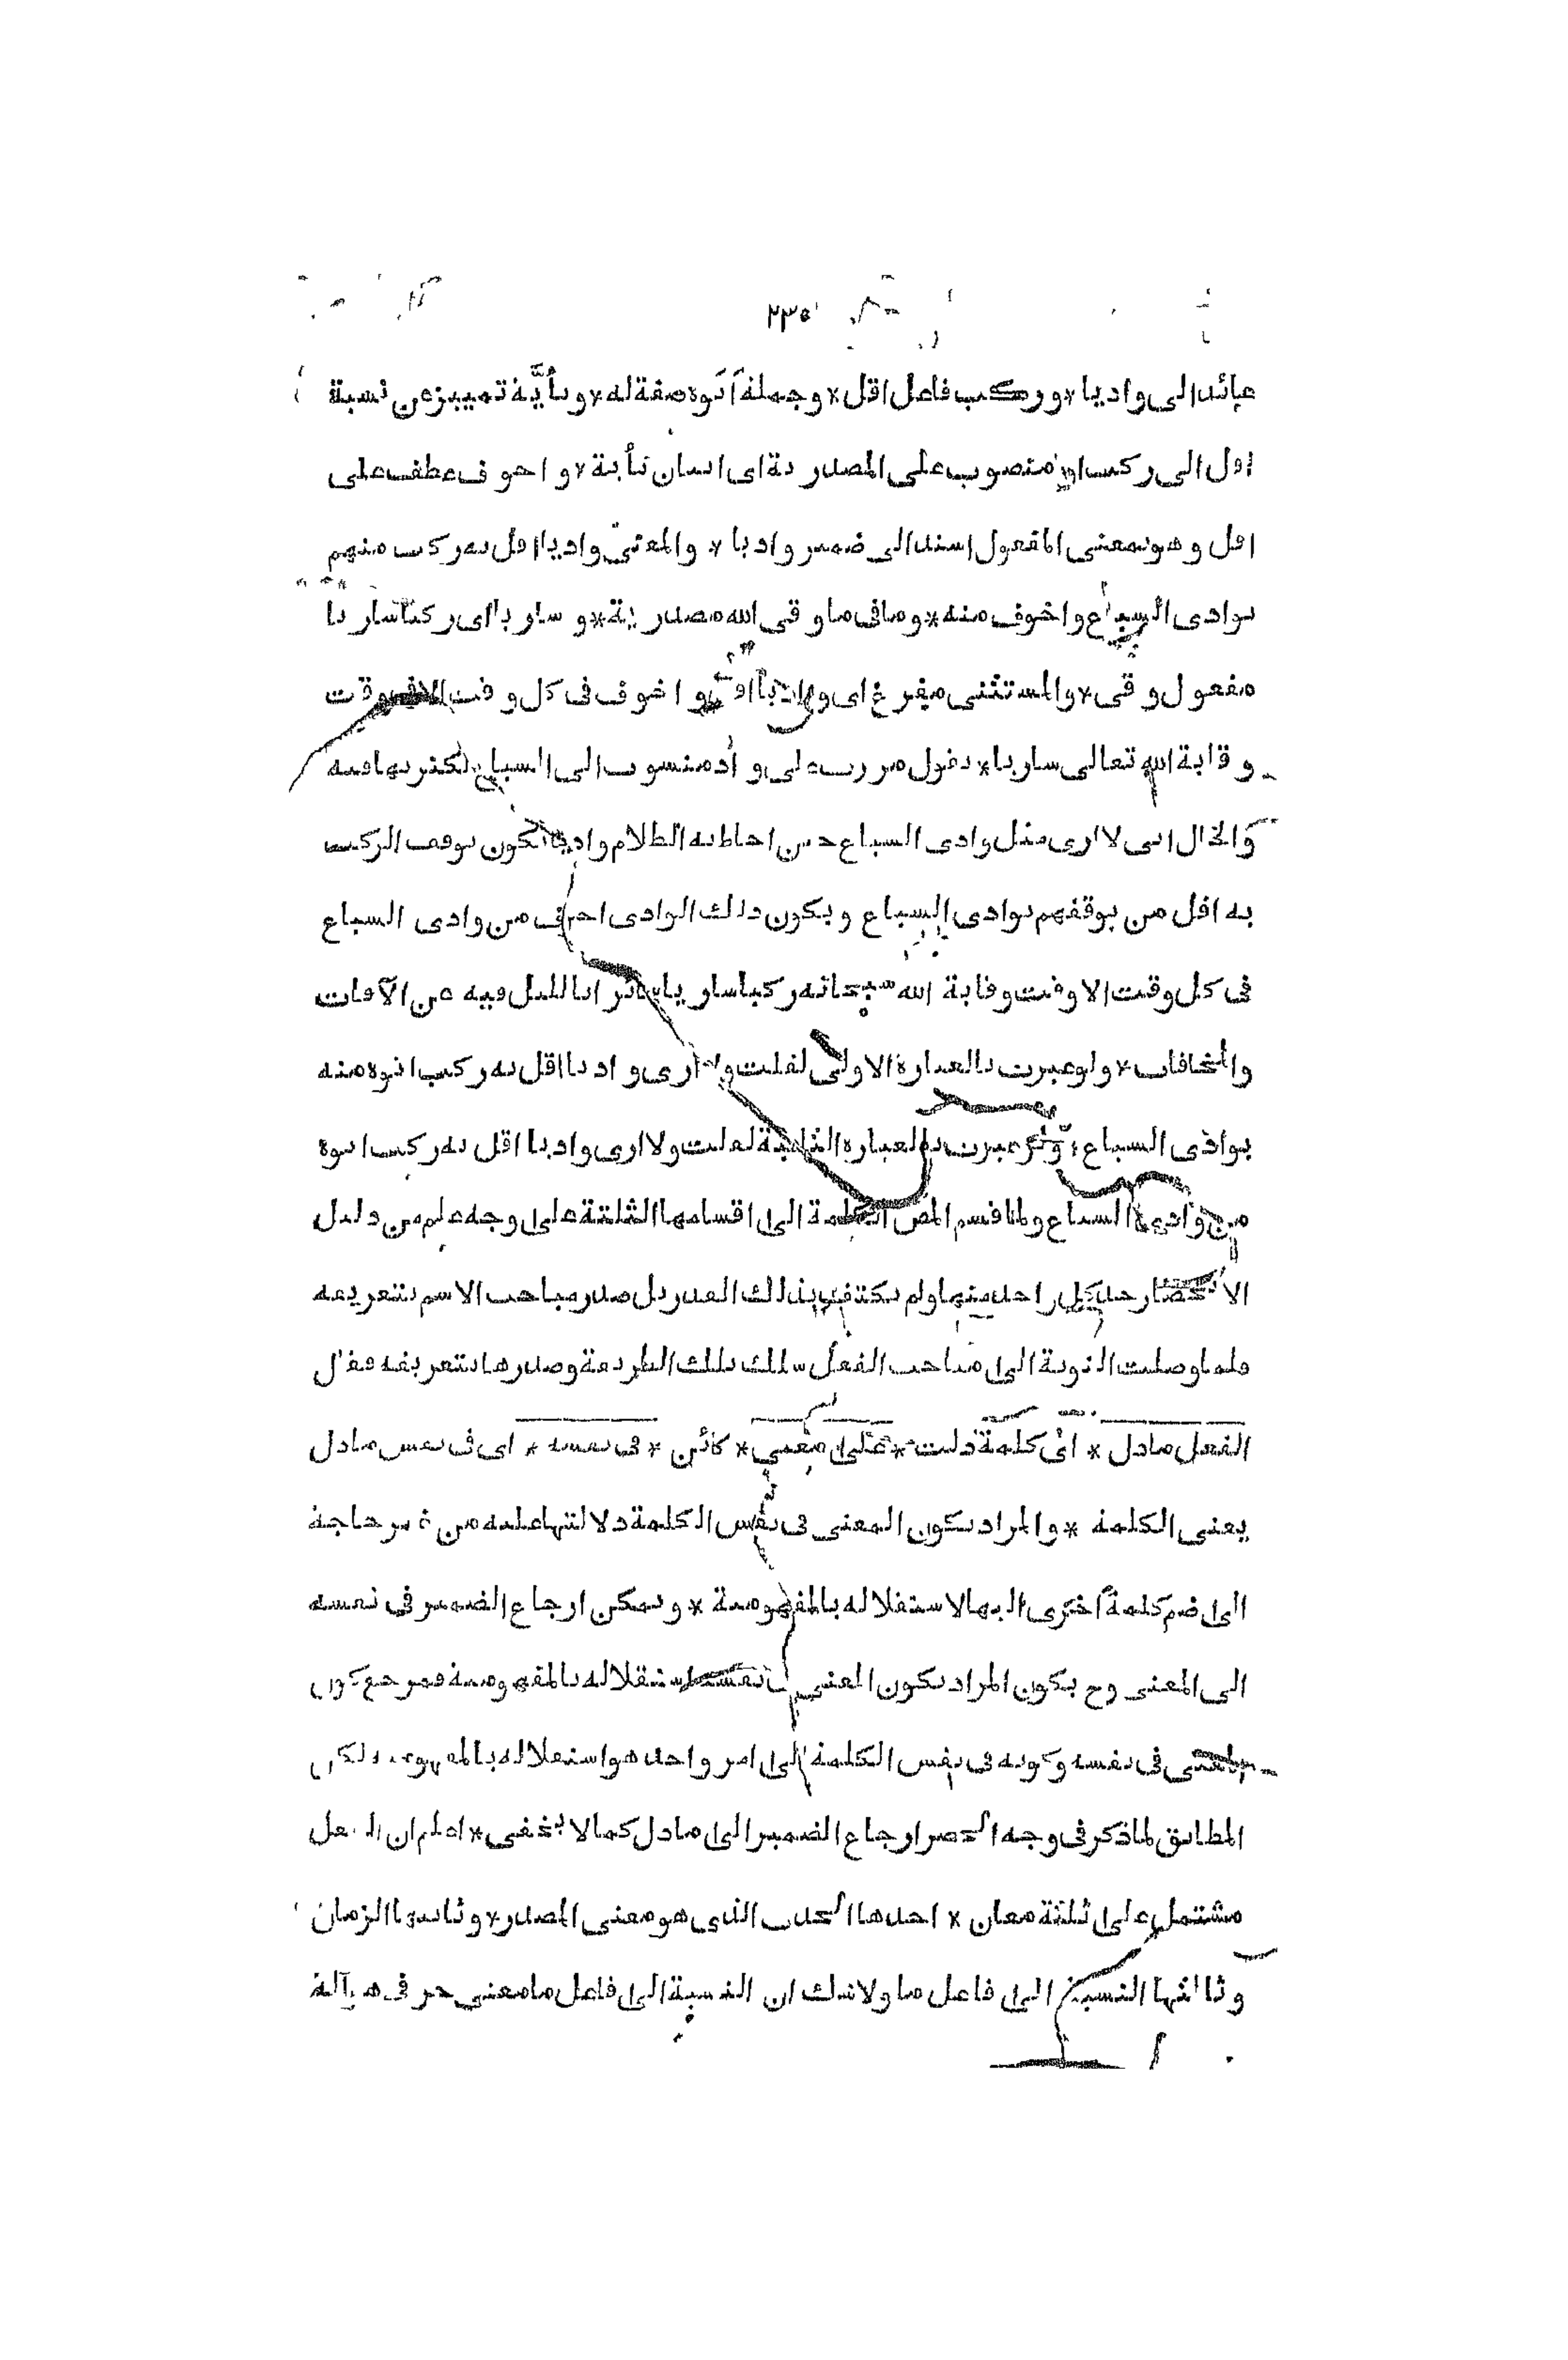 ٢٣٥
عائد الى واديا * وركب فاعل اقل * وجملة اتوه صفة له * وتأيَّة تمييز عن نسبة
اقل الى ركب او منصوب على المصدرية اى اتيان تأية * واخوف عطف على
اقل وهو بمعنى المفعول اسند الى ضمير واديا * والمعنى واديا اقل به ركب منهم
بوادى السباع واخوف منه * وما فى ما وقى الله مصدرية * وساريا اى ركبا ساريا
مفعول وقى * والمستثنى مفرغ اى واديا اقل واخوف فى كل وقت الا فى وقت
وقاية الله تعالى ساريا * يقول مررت على واد منسوب الى السباع لكثرتها فيه
والحال انى لا ارى مثل وادى السباع حين احاط به الظلام واديا يكون توقف الركب
به اقل من توقفهم بوادى السباع ويكون ذلك الوادى اخوف من وادى السباع
فى كل وقت الا وقت وقاية الله سبحانه ركبا ساريا بالليل فيه عن الآفات
والمخافات * ولو عبرت بالعبارة الاولى لقلت ولا ارى واديا اقل به ركب اتوه منه
بوادى السباع * ولو عبرت بالعبارة الثانية لقلت ولا ارى واديا اقل به ركب اتوه
من وادى السباع ولما قسم المص الكلمة الى اقسامها الثلثة على وجه علم من دليل
الانحصار حد كل واحد منها ولم يكتف بذلك القدر بل صدر مباحث الاسم بتعريفه
فلما وصلت النوبة الى مباحث الفعل سلك تلك الطريقة وصدرها بتعريفه فقال
الفعل ما دل * اى كلمة دلت * على معنى * كائن * فى نفسه * اى فى نفس ما دل
يعنى الكلمة * والمراد بكون المعنى فى نفس الكلمة دلالتها عليه من غير حاجة
الى ضم كلمة اخرى اليها لاستقلاله بالمفهومية * ويمكن ارجاع الضمير فى نفسه
الى المعنى وح يكون المراد بكون المعنى فى نفسه استقلاله بالمفهومية فمرجع كون
المعنى فى نفسه وكونه فى نفس الكلمة الى امر واحد هو استقلاله بالمفهومية لكن
المطابق لما ذكر فى وجه الحصر ارجاع الضمير الى ما دل كما لا يخفى * اعلم ان الفعل
مشتمل على ثلثة معان * احدها الحدث الذى هو معنى المصدر * وثانيها الزمان
وثالثها النسبة الى فاعل ما ولا شك ان النسبة الى فاعل ما معنى حرفى هى آلة